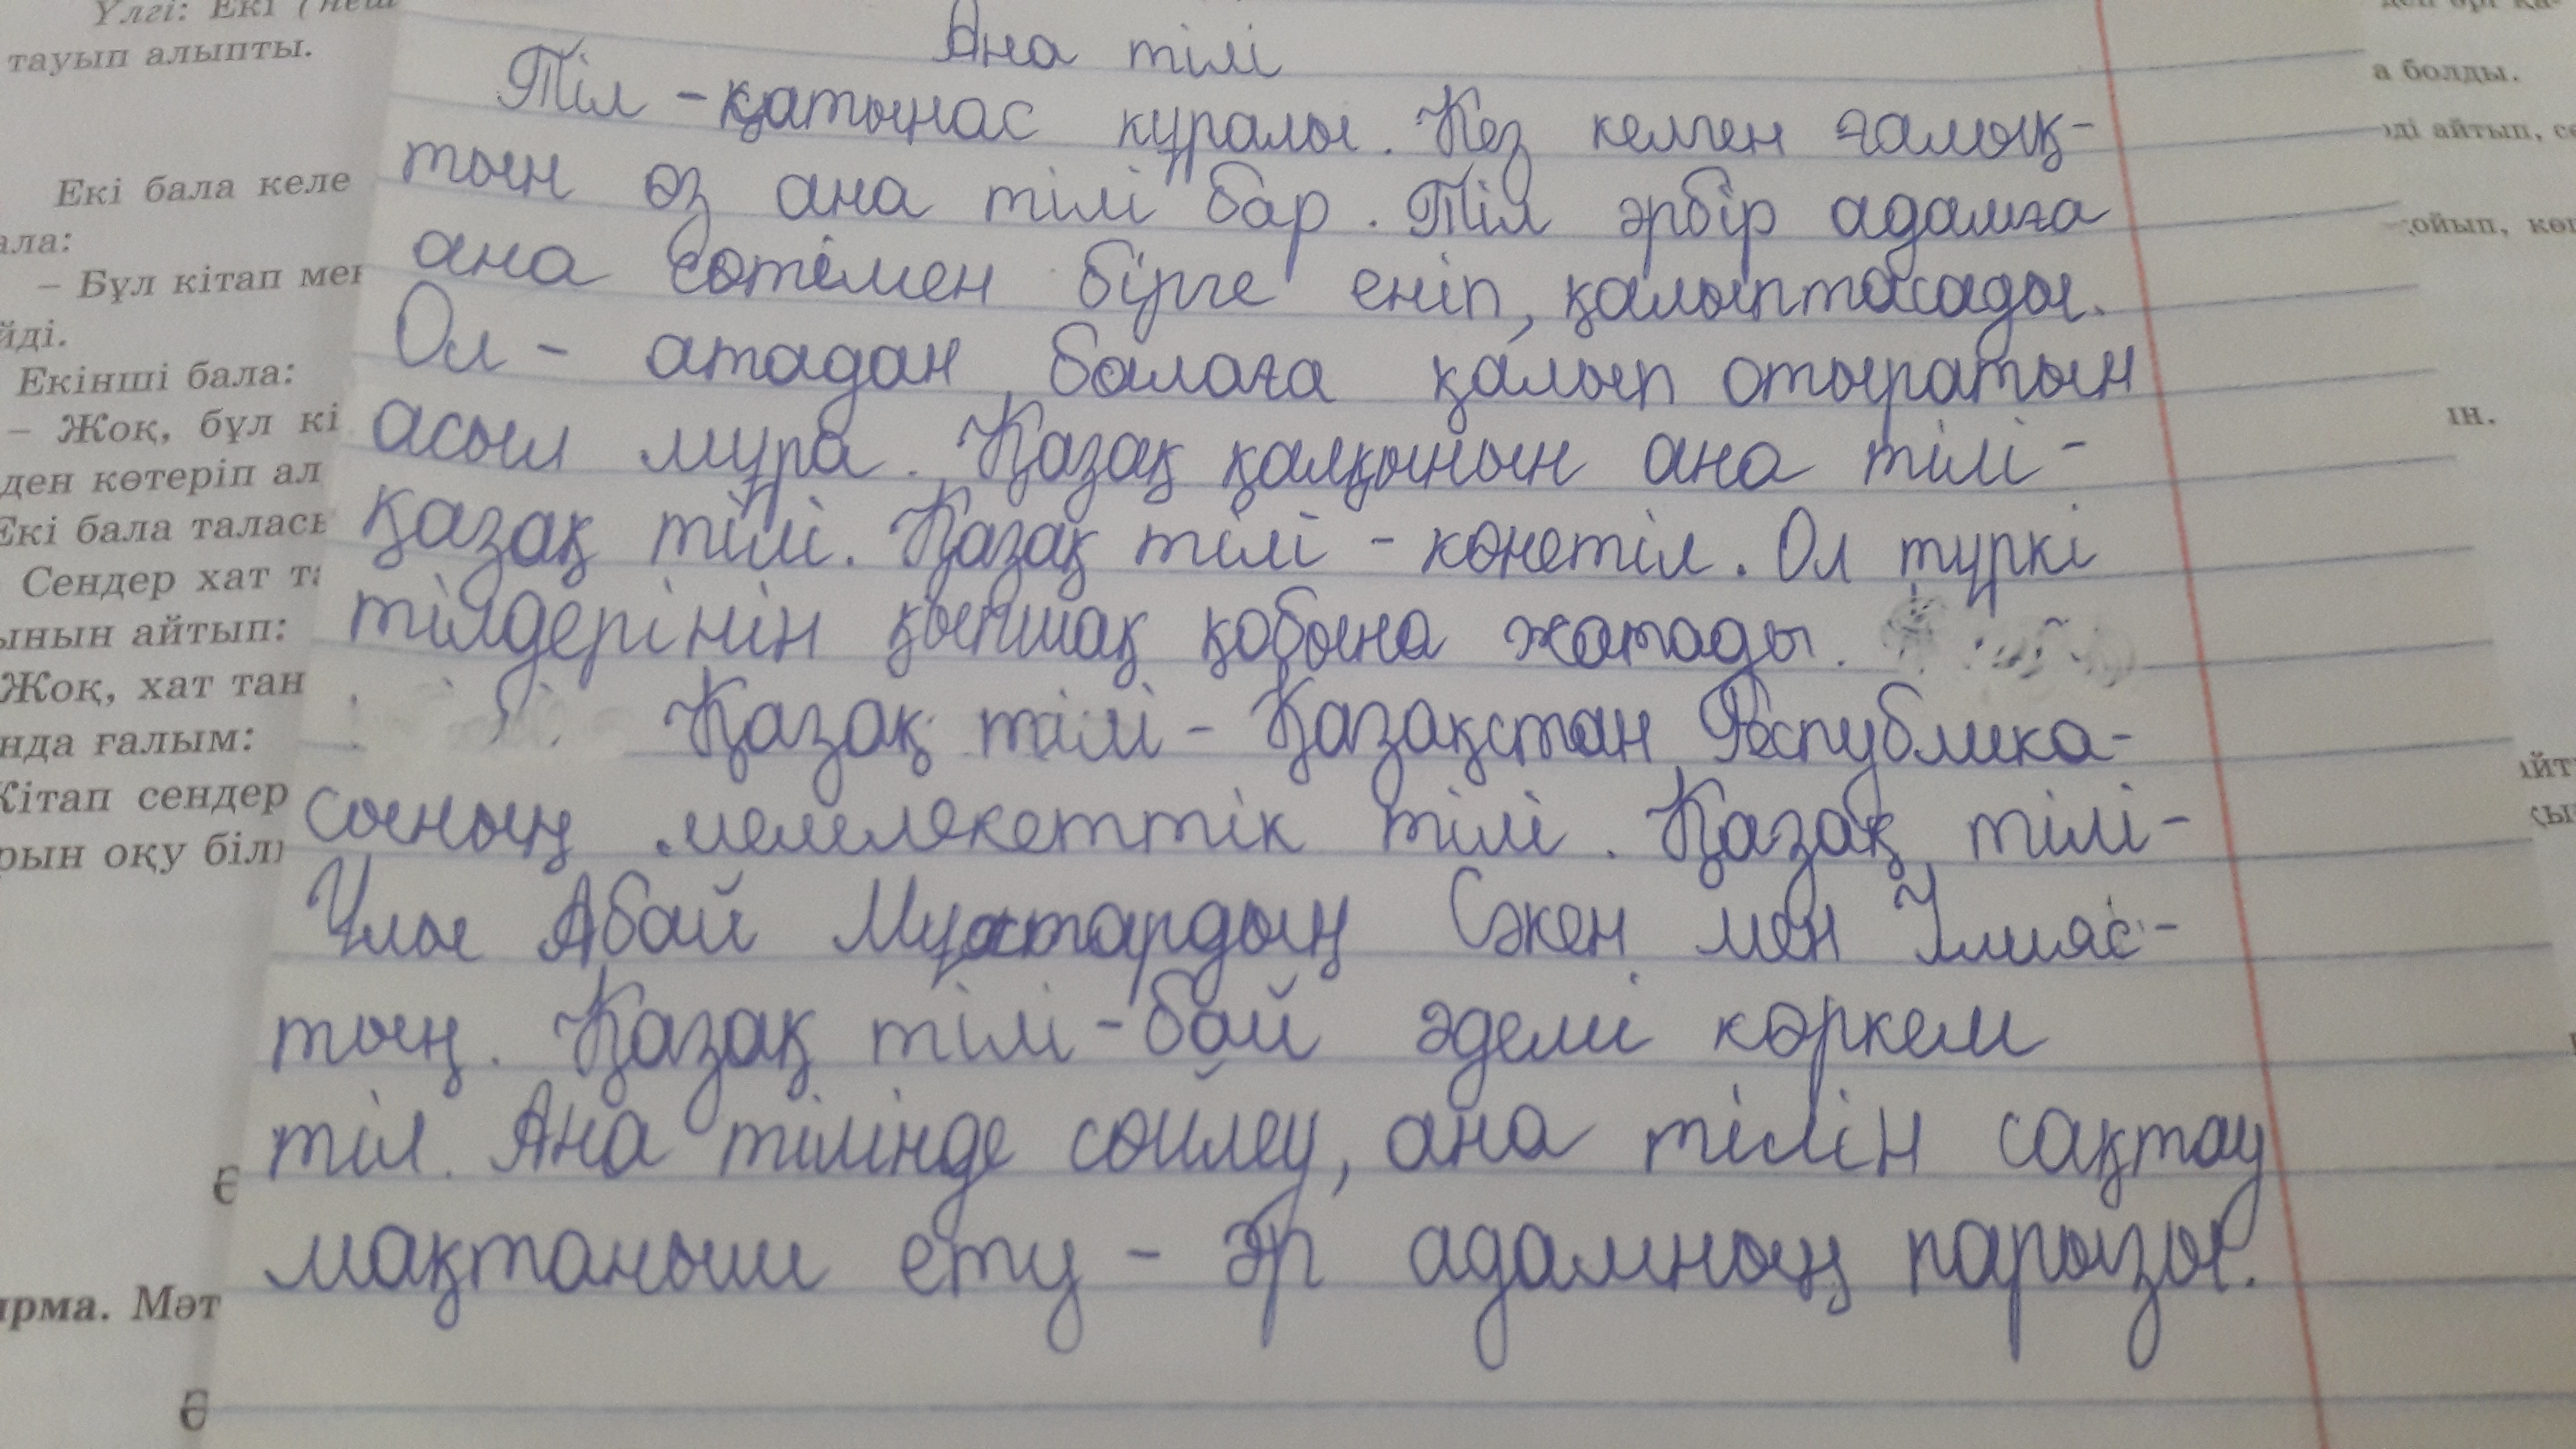 Үлгі: Екі (неш
тауып алыпты.
Екі бала келе
ала:
– Бұл кітап мен
йді.
Екінші бала:
– Жоқ, бұл кі
ден көтеріп ал
Екі бала таласы
Сендер хат та
ынын айтып:
Жоқ, хат тан
нда ғалым:
Кітап сендер
рын оқу білі
ә
ырма. Мәт
ә
Ана тілі
Тіл - қатынас құралы. Кез келген ғалық-
тын өз ана тілі бар. Тіл әрбір адамға
ана сөтімен бірге еніп, қалыптасады.
Ол - атадан балаға қалып отыратын
асыл мұра. Қазақ қалқынын ана тілі -
қазақ тілі. Қазақ тілі - көнетіл. Ол түркі
тілдерінін қыпшақ қобына жатады.
Қазақ тілі - Қазақстан Республика-
сының мемлекеттік тілі. Қазақ тілі -
Ұлы Абай Мұхтардың Сәкен мен Ілияс-
тың. Қазақ тілі - бай әдемі көркем
тіл. Ана тілінде сөйлеу, ана тілін сақтау
мақтаныш ету - әр адамның парызы.
а болды.
ді айтып, се
қойып, көп
ін.